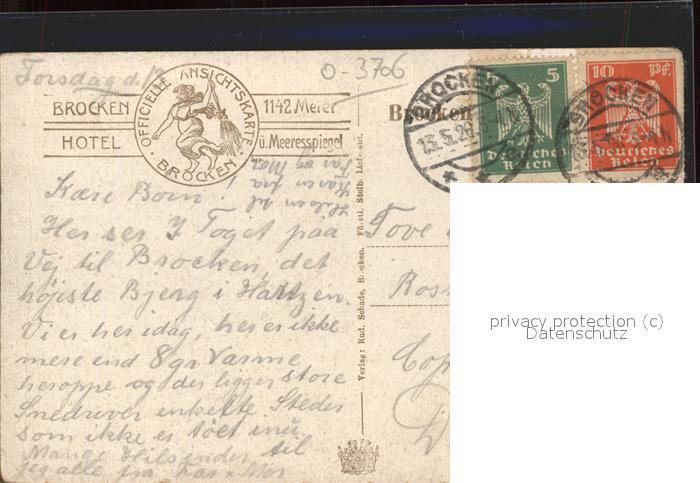 Torsdag d. 13
O-3706
BROCKEN
HOTEL
OFFICIELLE ANSICHTSKARTE
BROCKEN
1142 Meter
ü. Meeresspiegel
Brocken
BROCKEN
13.5.26
5
Deutsches
Reich
10 Pf.
BROCKEN
Deutsches
Reich
Hilsen til
Karen fra
Far og Mor
Kære Børn!
Her ser I Toget paa
Vej til Brocken, det
højeste Bjerg i Hartzen.
Vi er her idag, her er ikke
mere end 8 gr Varme
heroppe og der ligger store
Snedriver enkelte Steder
som ikke er tøet inu
Mange Hilsender til
jer alle fra Far & Mor
Verlag: Rud. Schade, Brocken. Fürstl. Stolb. Lieferant.
Tove
Ros
Cop
D
privacy protection (c)
Datenschutz